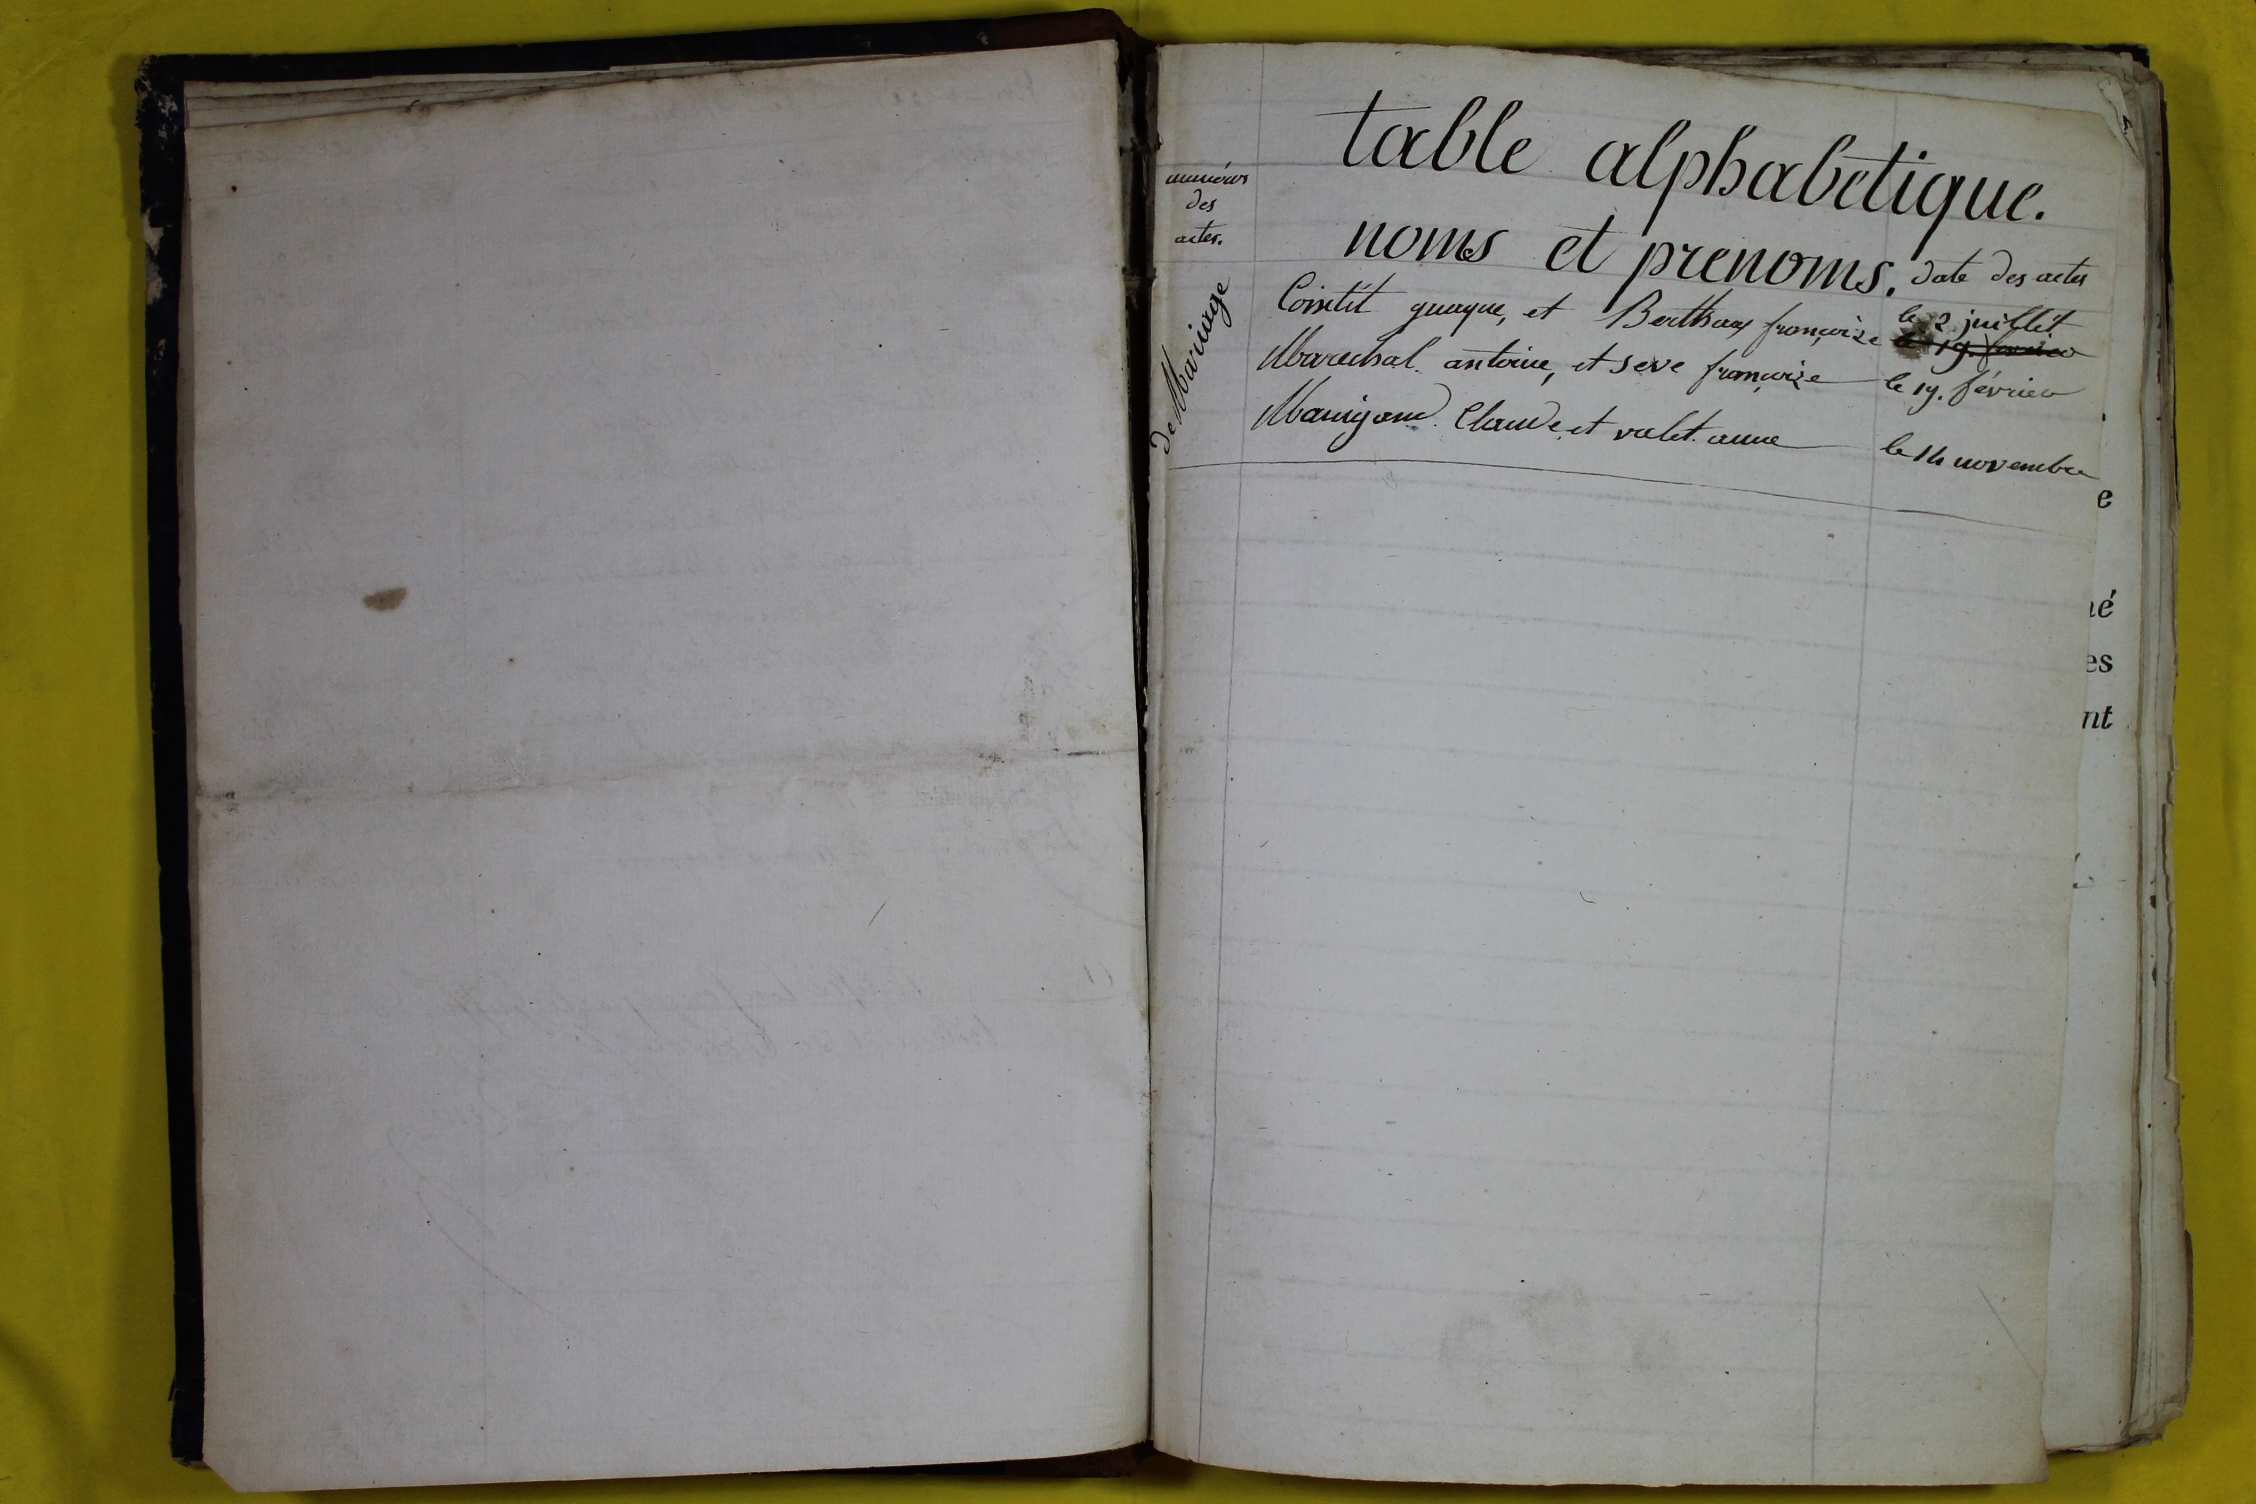 table alphabétique.
numéros
des
actes.
noms et prenoms.
date des actes
de Mariage
Cointét guaque, et Berthoux françoise le 2 juillét
le 19. février
Marechal. antoine, et seve françoise le 19. février
Manigand. Claude, et valet. anne le 14 novembre
e
né
es
nt